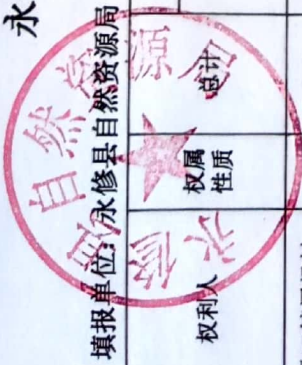 永
填报单位：永修县自然资源局
权利人
权属
性质
总计
永修县自然资源局